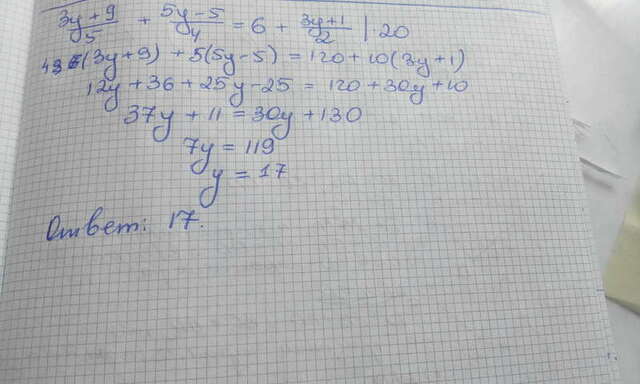 3y+9/5 + 5y-5/4 = 6 + 3y+1/2 | 20
4(3y+9) + 5(5y-5) = 120+10(3y+1)
12y+36+25y-25 = 120+30y+10
37y+11 = 30y+130
7y = 119
y = 17
Ответ: 17.